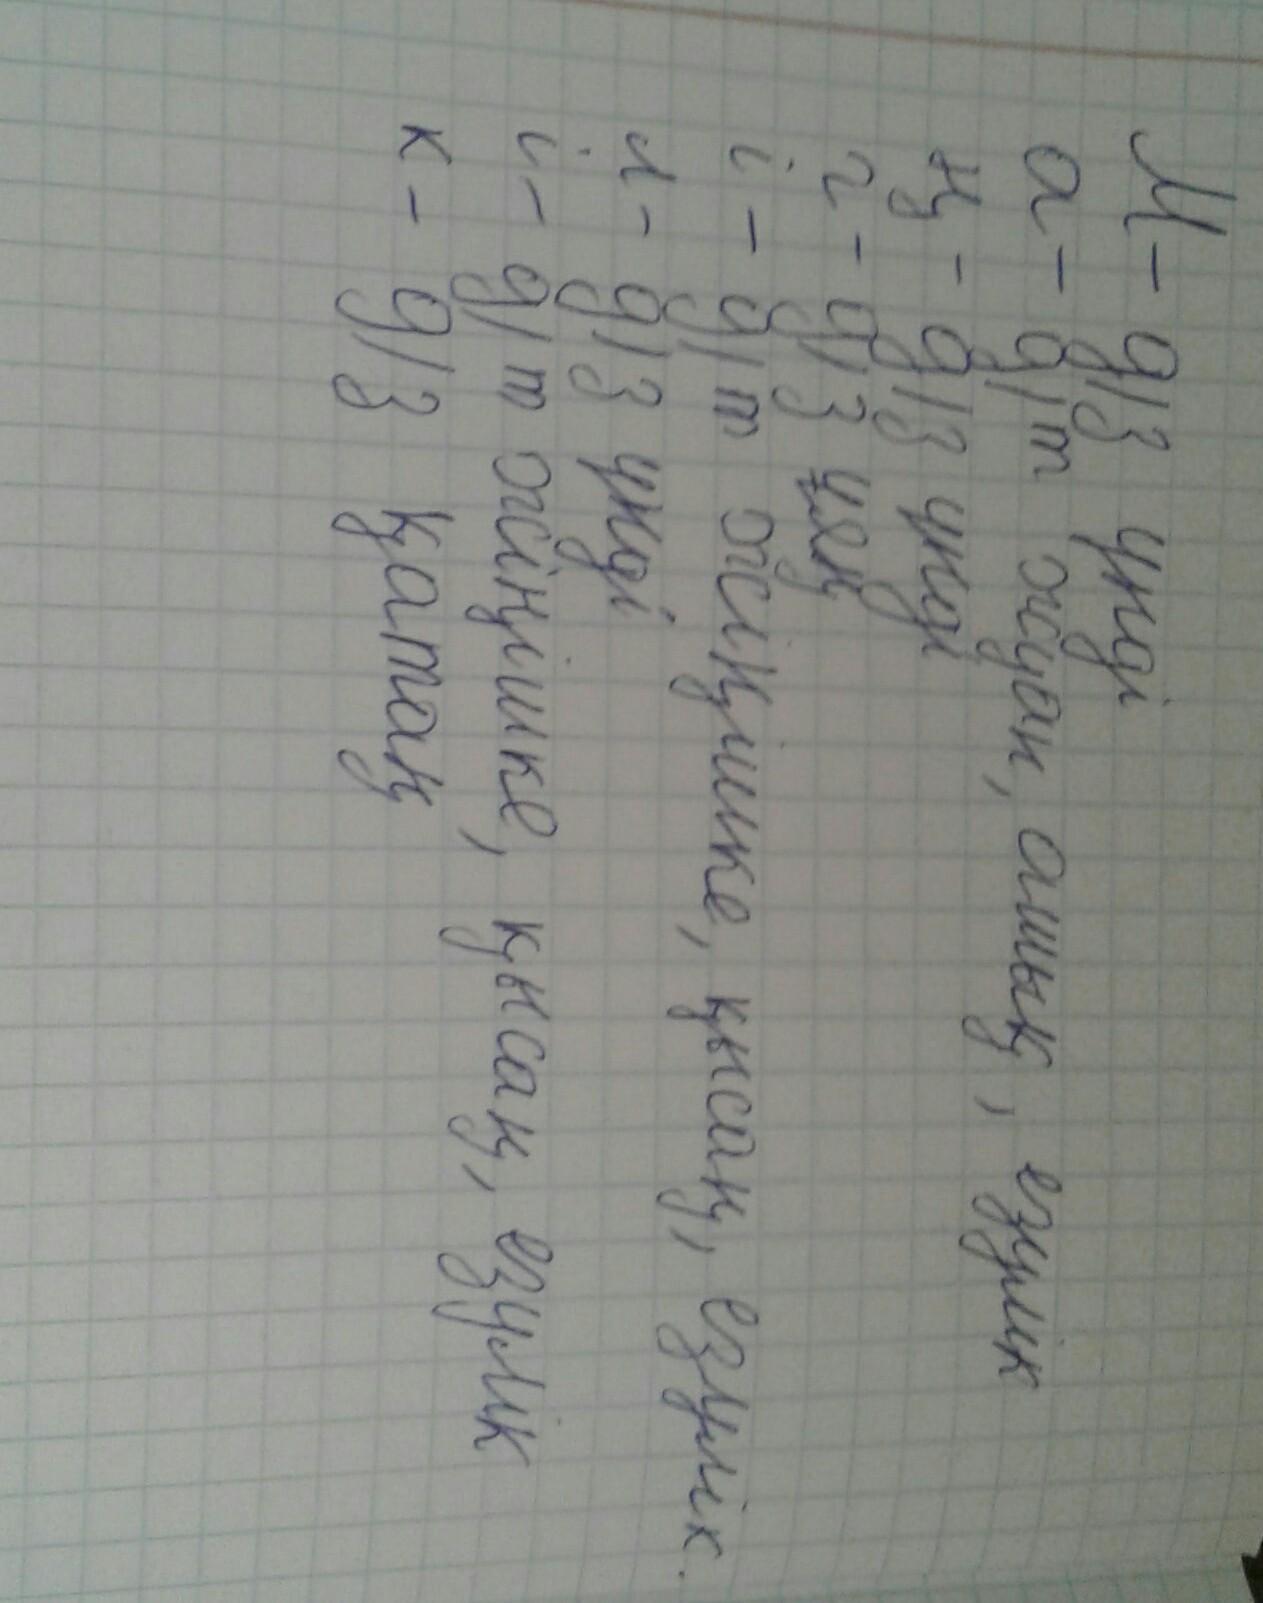 М - д/з үнді
а - д/т жуан, ашық, езулік
ң - д/з үнді
г - д/з ұяң
і - д/т жіңішке, қысаң, езулік.
л - д/з үнді
і - д/т жіңішке, қысаң, езулік
к - д/з қатаң